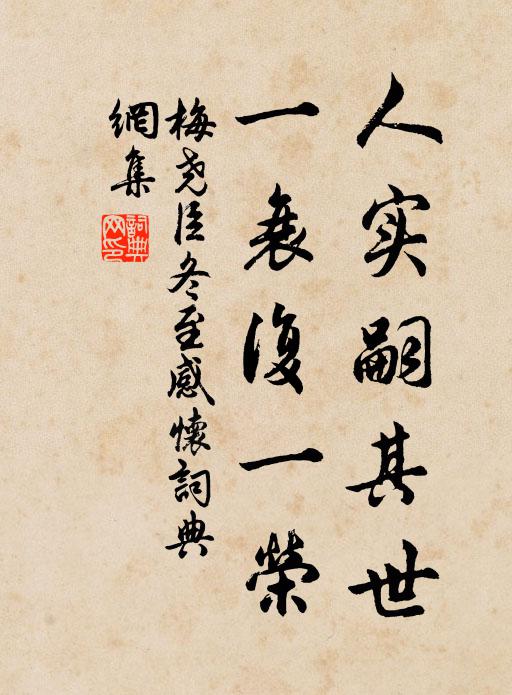 人实嗣其世
一衰復一榮
梅尧臣冬至感懷詞典
網集
詞典
网印